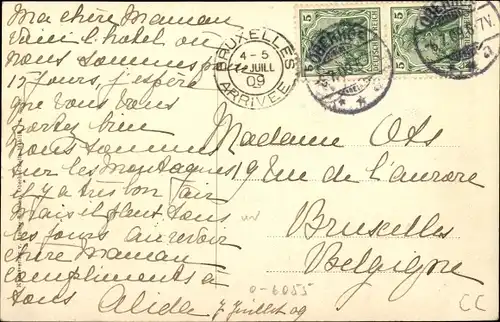 Ma chère Maman
voici l'hotel ou
nous sommes pour
15 jours, j'espère
que vous vous
portez bien
nous sommes
sur les Montagnes
il y a tres bon l'air
Mais il pleut tous
les jours au revoir
chère Maman
compliments à
tous Alida 7 juillet 09
BRUXELLES
4-5
JUILL
09
ARRIVEE
5 5 5
DEUTSCHES REICH
Madame Ots
19 rue de l'aurore
Bruxelles
Belgique
0-6055
CC